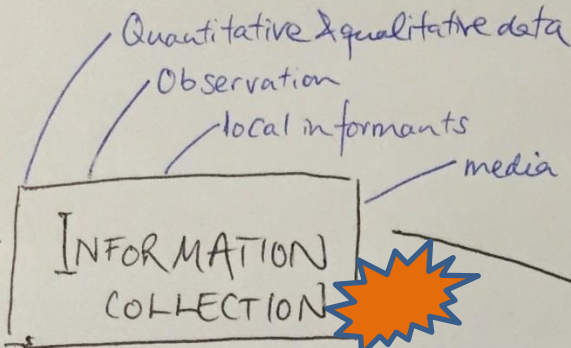 Quantitative & qualitative data
Observation
local informants
media
INFORMATION
COLLECTION